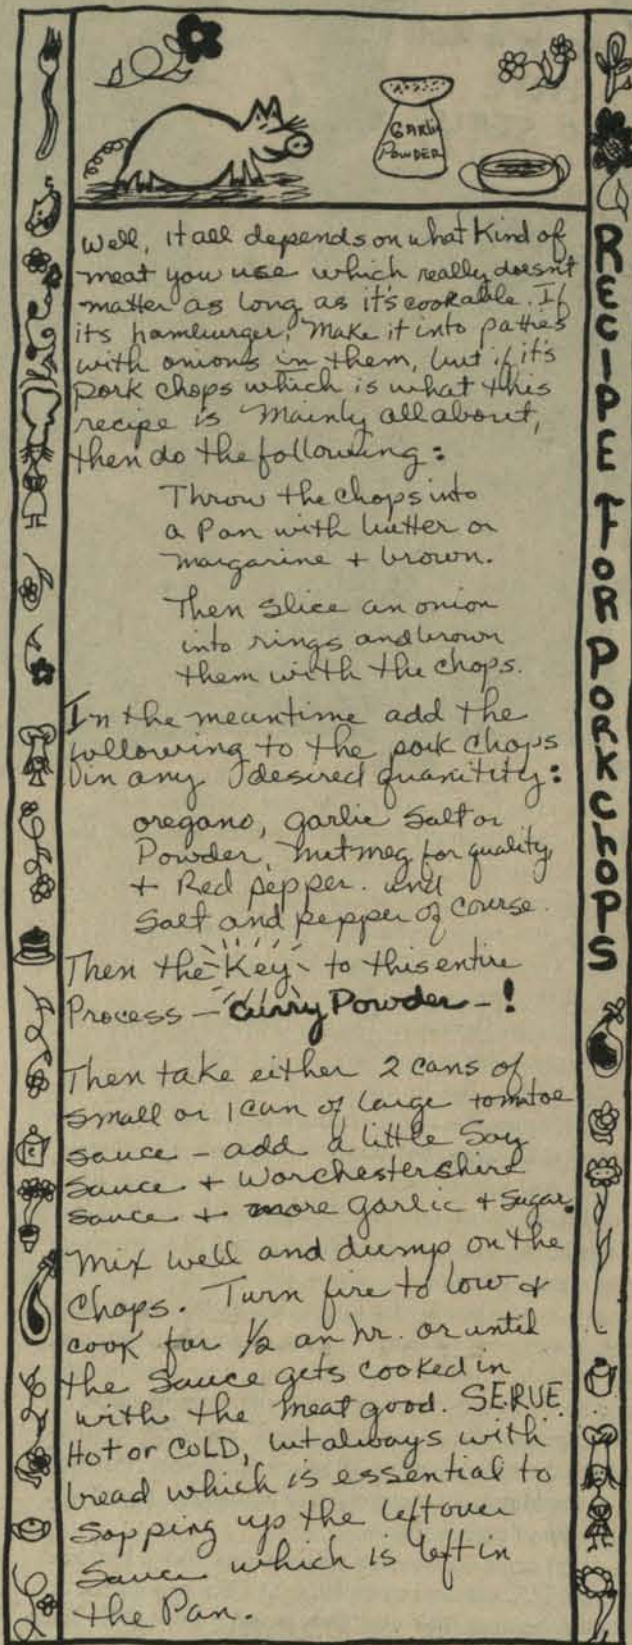 GARLIC
POWDER
RECIPE FOR PORK CHOPS
Well, it all depends on what kind of
meat you use which really doesn't
matter as long as it's cookable. If
its hamburger, make it into patties
with onions in them, but if it's
pork chops which is what this
recipe is mainly all about,
then do the following:
Throw the chops into
a Pan with butter or
margarine + brown.
Then slice an onion
into rings and brown
them with the chops.
In the meantime add the
following to the pork chops
in any desired quanitity:
oregano, garlic salt or
Powder, nutmeg for quality
+ Red pepper. and
Salt and pepper of course.
Then the Key to this entire
Process - Curry Powder - !
Then take either 2 cans of
small or 1 can of large tomatoe
sauce - add a little Soy
sauce + Worchestershire
sauce + more garlic + sugar.
Mix well and dump on the
Chops. Turn fire to low &
cook for 1/2 an hr. or until
the sauce gets cooked in
with the meat good. SERVE
HOT or COLD, but always with
bread which is essential to
sopping up the leftover
sauce which is left in
the Pan.